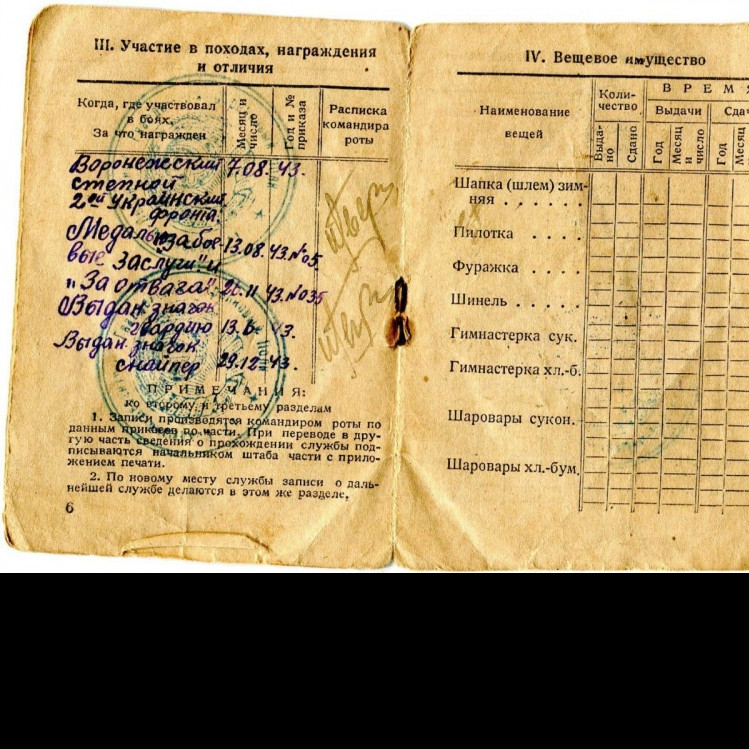 III. Участие в походах, награждения
и отличия
Когда, где участвовал
в боях.
За что награжден
Месяц и
число
Год и №
приказа
Расписка
командира
роты
Воронежский 7.08. 43.
степной
2ой Украинский
фронта.
Медаль „за бое- 13.08. 43. №05.
вые заслуги" и
„За отвагу" 43. №035
Выдан значок
гвардию 13.6 43.
Выдан значок
снайпер 29.12 43.
ПРИМЕЧАНИЯ:
ко второму и третьему разделам
1. Записи производятся командиром роты по
данным приказов по части. При переводе в дру-
гую часть сведения о прохождении службы под-
писываются начальником штаба части с прило-
жением печати.
2. По новому месту службы записи о даль-
нейшей службе делаются в этом же разделе.
6
IV. Вещевое имущество
Наименование
вещей
Коли-
чество
ВРЕМЯ
Выдачи
Сдач
Выда-
но
Сдано
Год
Месяц
и
число
Год
Месяц
Шапка (шлем) зим-
няя . . . . . .
Пилотка . . . .
Фуражка . . . .
Шинель . . . .
Гимнастерка сук.
Гимнастерка хл.-б.
Шаровары сукон.
Шаровары хл.-бум.